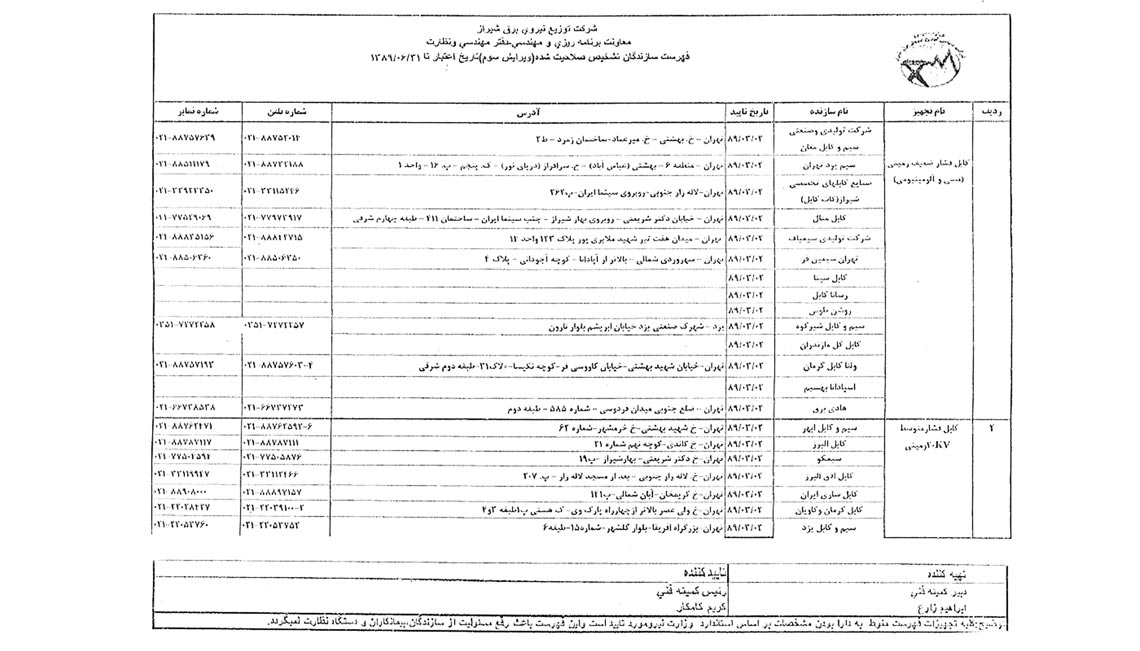 شرکت توزیع نیروی برق شیراز
معاونت برنامه ریزی و مهندسی-دفتر مهندسی ونظارت
فهرست سازندگان تشخیص صلاحیت شده(ویرایش سوم)تاریخ اعتبار تا ۱۳۸۹/۰۶/۳۱
ردیف نام تجهیز نام سازنده تاریخ تایید آدرس شماره تلفن شماره نمابر
کابل فشار ضعیف زمینی (مسی و آلومینیومی)
شرکت تولیدی وصنعتی سیم و کابل مغان ۸۹/۰۳/۰۲ تهران - خ. بهشتی - خ. میرعماد-ساختمان زمرد - ط۲ ۰۲۱-۸۸۷۵۲۰۱۲ ۰۲۱-۸۸۷۵۷۶۳۹
سیم یزد تهران ۸۹/۰۳/۰۲ تهران - منطقه ۶ - بهشتی (عباس آباد) - خ. سرافراز (دریای نور) - ک. پنجم - پ. ۱۶ - واحد ۱ ۰۲۱-۸۸۷۳۳۱۸۸ ۰۲۱-۸۸۵۱۱۱۷۹
صنایع کابلهای تخصصی شیراز(کات کابل) ۸۹/۰۳/۰۲ تهران-لاله زار جنوبی-روبروی سینما ایران-پ۲۶۲ ۰۲۱-۳۳۱۱۵۲۴۶ ۰۲۱-۳۳۹۲۳۳۵۰
کابل متال ۸۹/۰۳/۰۲ تهران - خیابان دکتر شریعتی - روبروی بهار شیراز - جنب سینما ایران - ساختمان ۴۱۱ - طبقه چهارم شرقی ۰۲۱-۷۷۹۷۲۹۱۷ ۰۲۱-۷۷۵۲۹۰۶۹
شرکت تولیدی سیمباف ۸۹/۰۳/۰۲ تهران - میدان هفت تیر شهید ملایری پور پلاک ۱۲۳ واحد ۱۲ ۰۲۱-۸۸۸۱۲۷۱۵ ۰۲۱-۸۸۸۳۵۱۵۶
تهران سیمین فر ۸۹/۰۳/۰۲ تهران - سهروردی شمالی - بالاتر از آپادانا - کوچه آجودانی - پلاک ۴ ۰۲۱-۸۸۵۰۶۳۵۰ ۰۲۱-۸۸۵۰۶۳۶۰
کابل سینا ۸۹/۰۳/۰۲
رسانا کابل ۸۹/۰۳/۰۲
روشن طوس ۸۹/۰۳/۰۲
سیم و کابل شیرکوه ۸۹/۰۳/۰۲ یزد - شهرک صنعتی یزد خیابان ابریشم بلوار نارون ۰۳۵۱-۷۲۷۲۳۵۷ ۰۳۵۱-۷۲۷۲۳۵۸
کابل کل مازندران ۸۹/۰۳/۰۲
ولتا کابل کرمان ۸۹/۰۳/۰۲ تهران-خیابان شهید بهشتی-خیابان کاووسی فر-کوچه نکیسا-پلاک۳۱-طبقه دوم شرقی ۰۲۱-۸۸۷۵۷۶۰۳-۴ ۰۲۱-۸۸۷۵۷۱۹۳
اسپادانا بهسیم ۸۹/۰۳/۰۲
هادی برق ۸۹/۰۳/۰۲ تهران - ضلع جنوبی میدان فردوسی - شماره ۵۸۵ - طبقه دوم ۰۲۱-۶۶۷۳۷۲۷۳ ۰۲۱-۶۶۷۳۸۵۳۸
۲ کابل فشارمتوسط ۲۰KVزمینی
سیم و کابل ابهر ۸۹/۰۳/۰۲ تهران-خ شهید بهشتی-خ خرمشهر-شماره ۶۲ ۰۲۱-۸۸۷۶۲۵۹۲-۶ ۰۲۱-۸۸۷۶۲۴۷۱
کابل البرز ۸۹/۰۳/۰۲ تهران-خ گاندی-کوچه نهم شماره ۲۱ ۰۲۱-۸۸۷۸۷۱۱۱ ۰۲۱-۸۸۷۸۷۱۱۷
سیمکو ۸۹/۰۳/۰۲ تهران-خ دکتر شریعتی-بهارشیراز-پ۱۹ ۰۲۱-۷۷۵۰۵۸۷۶ ۰۲۱-۷۷۵۰۲۵۹۲
کابل افق البرز ۸۹/۰۳/۰۲ تهران-خ. لاله زار جنوبی - بعد از مسجد لاله زار - پ. ۲۰۷ ۰۲۱-۳۳۱۱۲۱۶۶ ۰۲۱-۳۳۱۱۹۹۲۷
کابل سازی ایران ۸۹/۰۳/۰۲ تهران-خ کریمخان-آبان شمالی-پ۱۴۱ ۰۲۱-۸۸۸۹۷۱۵۷ ۰۲۱-۸۸۹۰۸۰۰۰
کابل کرمان وکاویان ۸۹/۰۳/۰۲ تهران-خ ولی عصر بالاتر ازچهارراه پارک وی-ک هستی پ۱طبقه ۳و۴ ۰۲۱-۲۲۰۳۹۱۰۰-۲ ۰۲۱-۲۲۰۳۸۲۳۷
سیم و کابل یزد ۸۹/۰۳/۰۲ تهران-بزرگراه افریقا-بلوار گلشهر-شماره۱۵-طبقه۶ ۰۲۱-۲۲۰۵۲۷۵۲ ۰۲۱-۲۲۰۵۲۷۶۰
تهیه کننده تاییدکننده
دبیر کمیته فنی رئیس کمیته فنی
ابراهیم زارع کریم کامکار
توضیح:کلیه تجهیزات فهرست منوط به دارا بودن مشخصات بر اساس استاندارد وزارت نیرومورد تایید است واین فهرست باعث رفع مسئولیت از سازندگان،پیمانکاران و دستگاه نظارت نمیگردد.